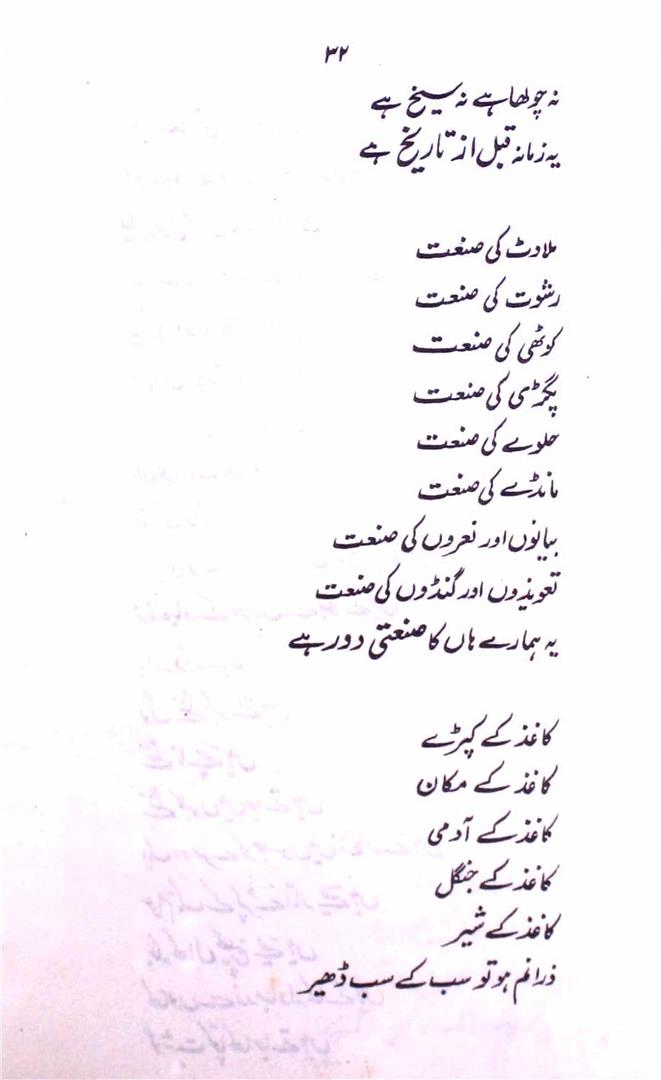 ۳۲
نہ چولھا ہے نہ سیخ ہے
یہ زمانہ قبل از تاریخ ہے
ملاوٹ کی صنعت
رشوت کی صنعت
کوٹھی کی صنعت
پگڑی کی صنعت
حلوے کی صنعت
مانڈے کی صنعت
بیانوں اور نعروں کی صنعت
تعویذوں اور گنڈوں کی صنعت
یہ ہمارے ہاں کا صنعتی دور ہے
کاغذ کے کپڑے
کاغذ کے مکان
کاغذ کے آدمی
کاغذ کے جنگل
کاغذ کے شیر
ذرا نم ہو تو سب کے سب ڈھیر